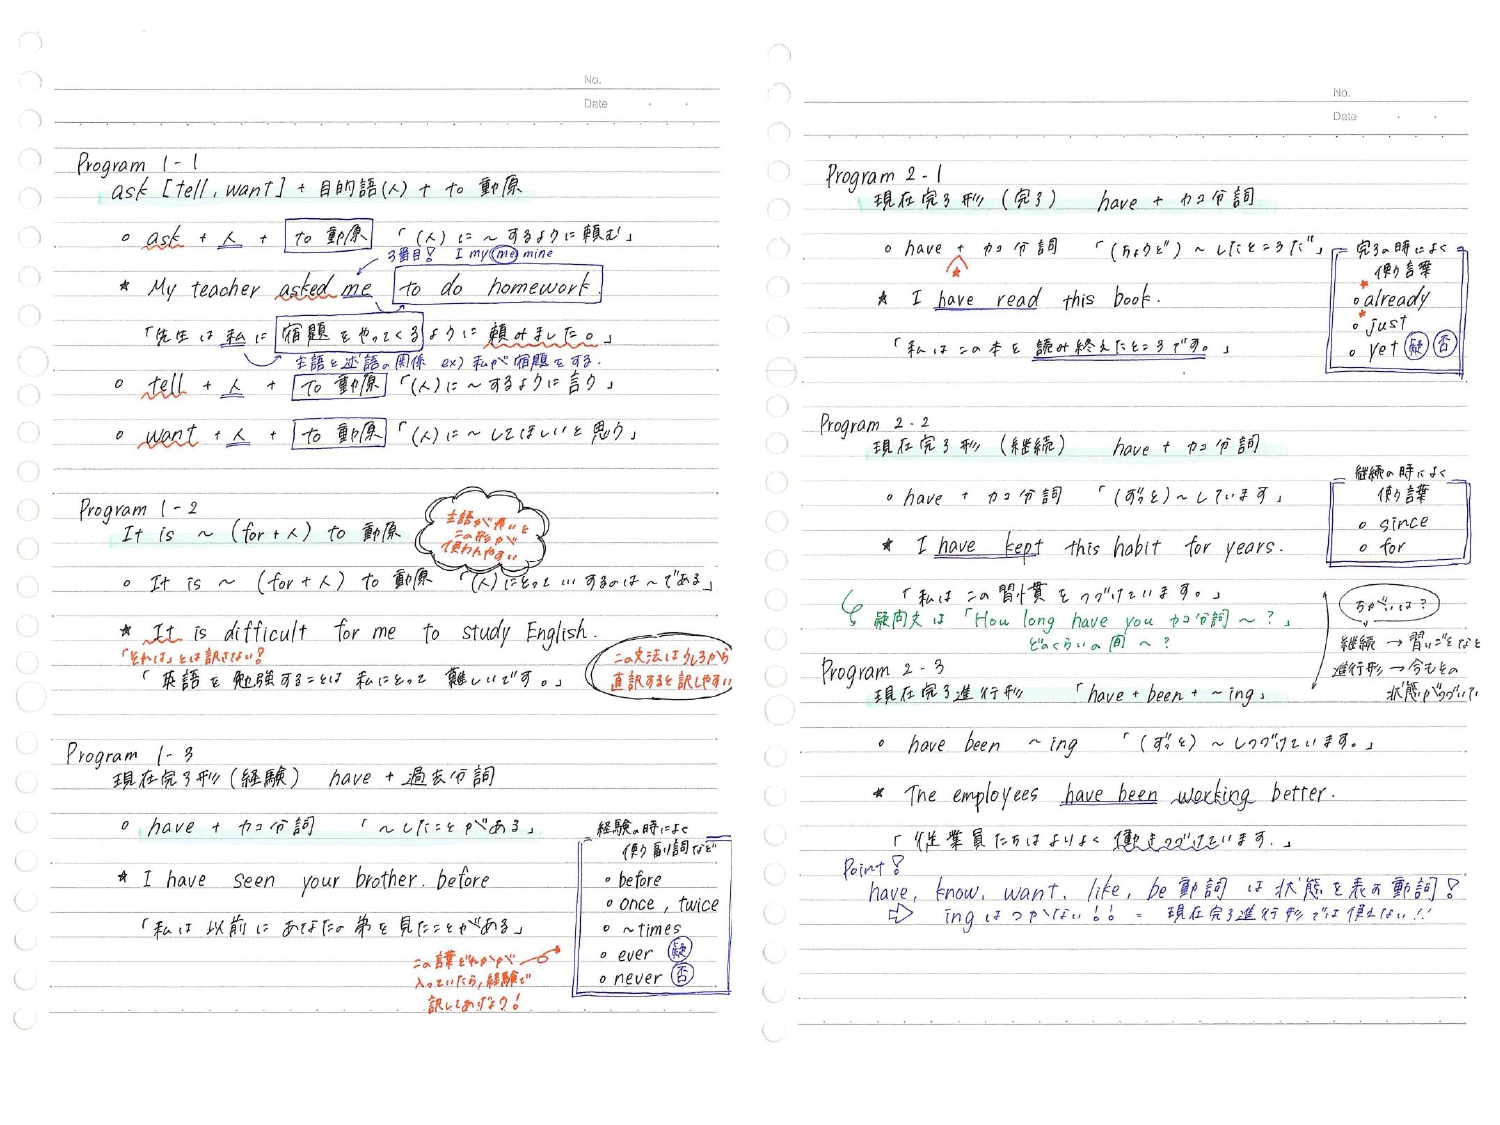 No.
Date
Program 1-1
ask [tell, want] + 目的語(人) + to 動原
○ ask + 人 + to 動原 「(人)に~するように頼む」
3番目! I my me mine
★ My teacher asked me to do homework.
「先生は私に宿題をやってくるように頼みました。」
主語と述語の関係 ex) 私が宿題をする.
○ tell + 人 + to 動原 「(人)に~するように言う」
○ want + 人 + to 動原 「(人)に~してほしいと思う」
Program 1-2
It is ~ (for+人) to 動原
主語が長いと
この形が
使われやすい
○ It is ~ (for+人) to 動原 「(人)にとって…するのは~である」
★ It is difficult for me to study English.
「それは」とは訳さない!
「英語を勉強することは私にとって難しいです。」
この文法はうしろから
直訳すると訳しやすい
Program 1-3
現在完了形(経験) have + 過去分詞
○ have + カコ分詞 「~したことがある」
★ I have seen your brother. before
「私は以前にあなたの弟を見たことがある」
経験の時によく
使う副詞など
○ before
○ once, twice
○ ~times
○ ever 疑
○ never 否
この言葉どれかが
入っていたら,経験で
訳してあげよう!
No.
Date
Program 2-1
現在完了形(完了) have + カコ分詞
○ have + カコ分詞 「(ちょうど)~したところだ」
★
★ I have read this book.
「私はこの本を読み終えたところです。」
完了の時によく
使う言葉
★
○ already
★
○ just
○ yet 疑 否
Program 2-2
現在完了形(継続) have + カコ分詞
○ have + カコ分詞 「(ずっと)~しています」
★ I have kept this habit for years.
「私はこの習慣をつづけています。」
疑問文は「How long have you カコ分詞~?」
どのくらいの間~?
継続の時によく
使う言葉
○ since
○ for
ちがいは?
継続→習いごとなど
進行形→今もその
状態がつづいて
Program 2-3
現在完了進行形 「have + been + ~ing」
○ have been ~ing 「(ずっと)~しつづけています。」
★ The employees have been working better.
「従業員たちはよりよく働きつづけています.」
Point!
have, know, want, like, be動詞は状態を表す動詞!
⇨ ingはつかない!! = 現在完了進行形では使わない!!